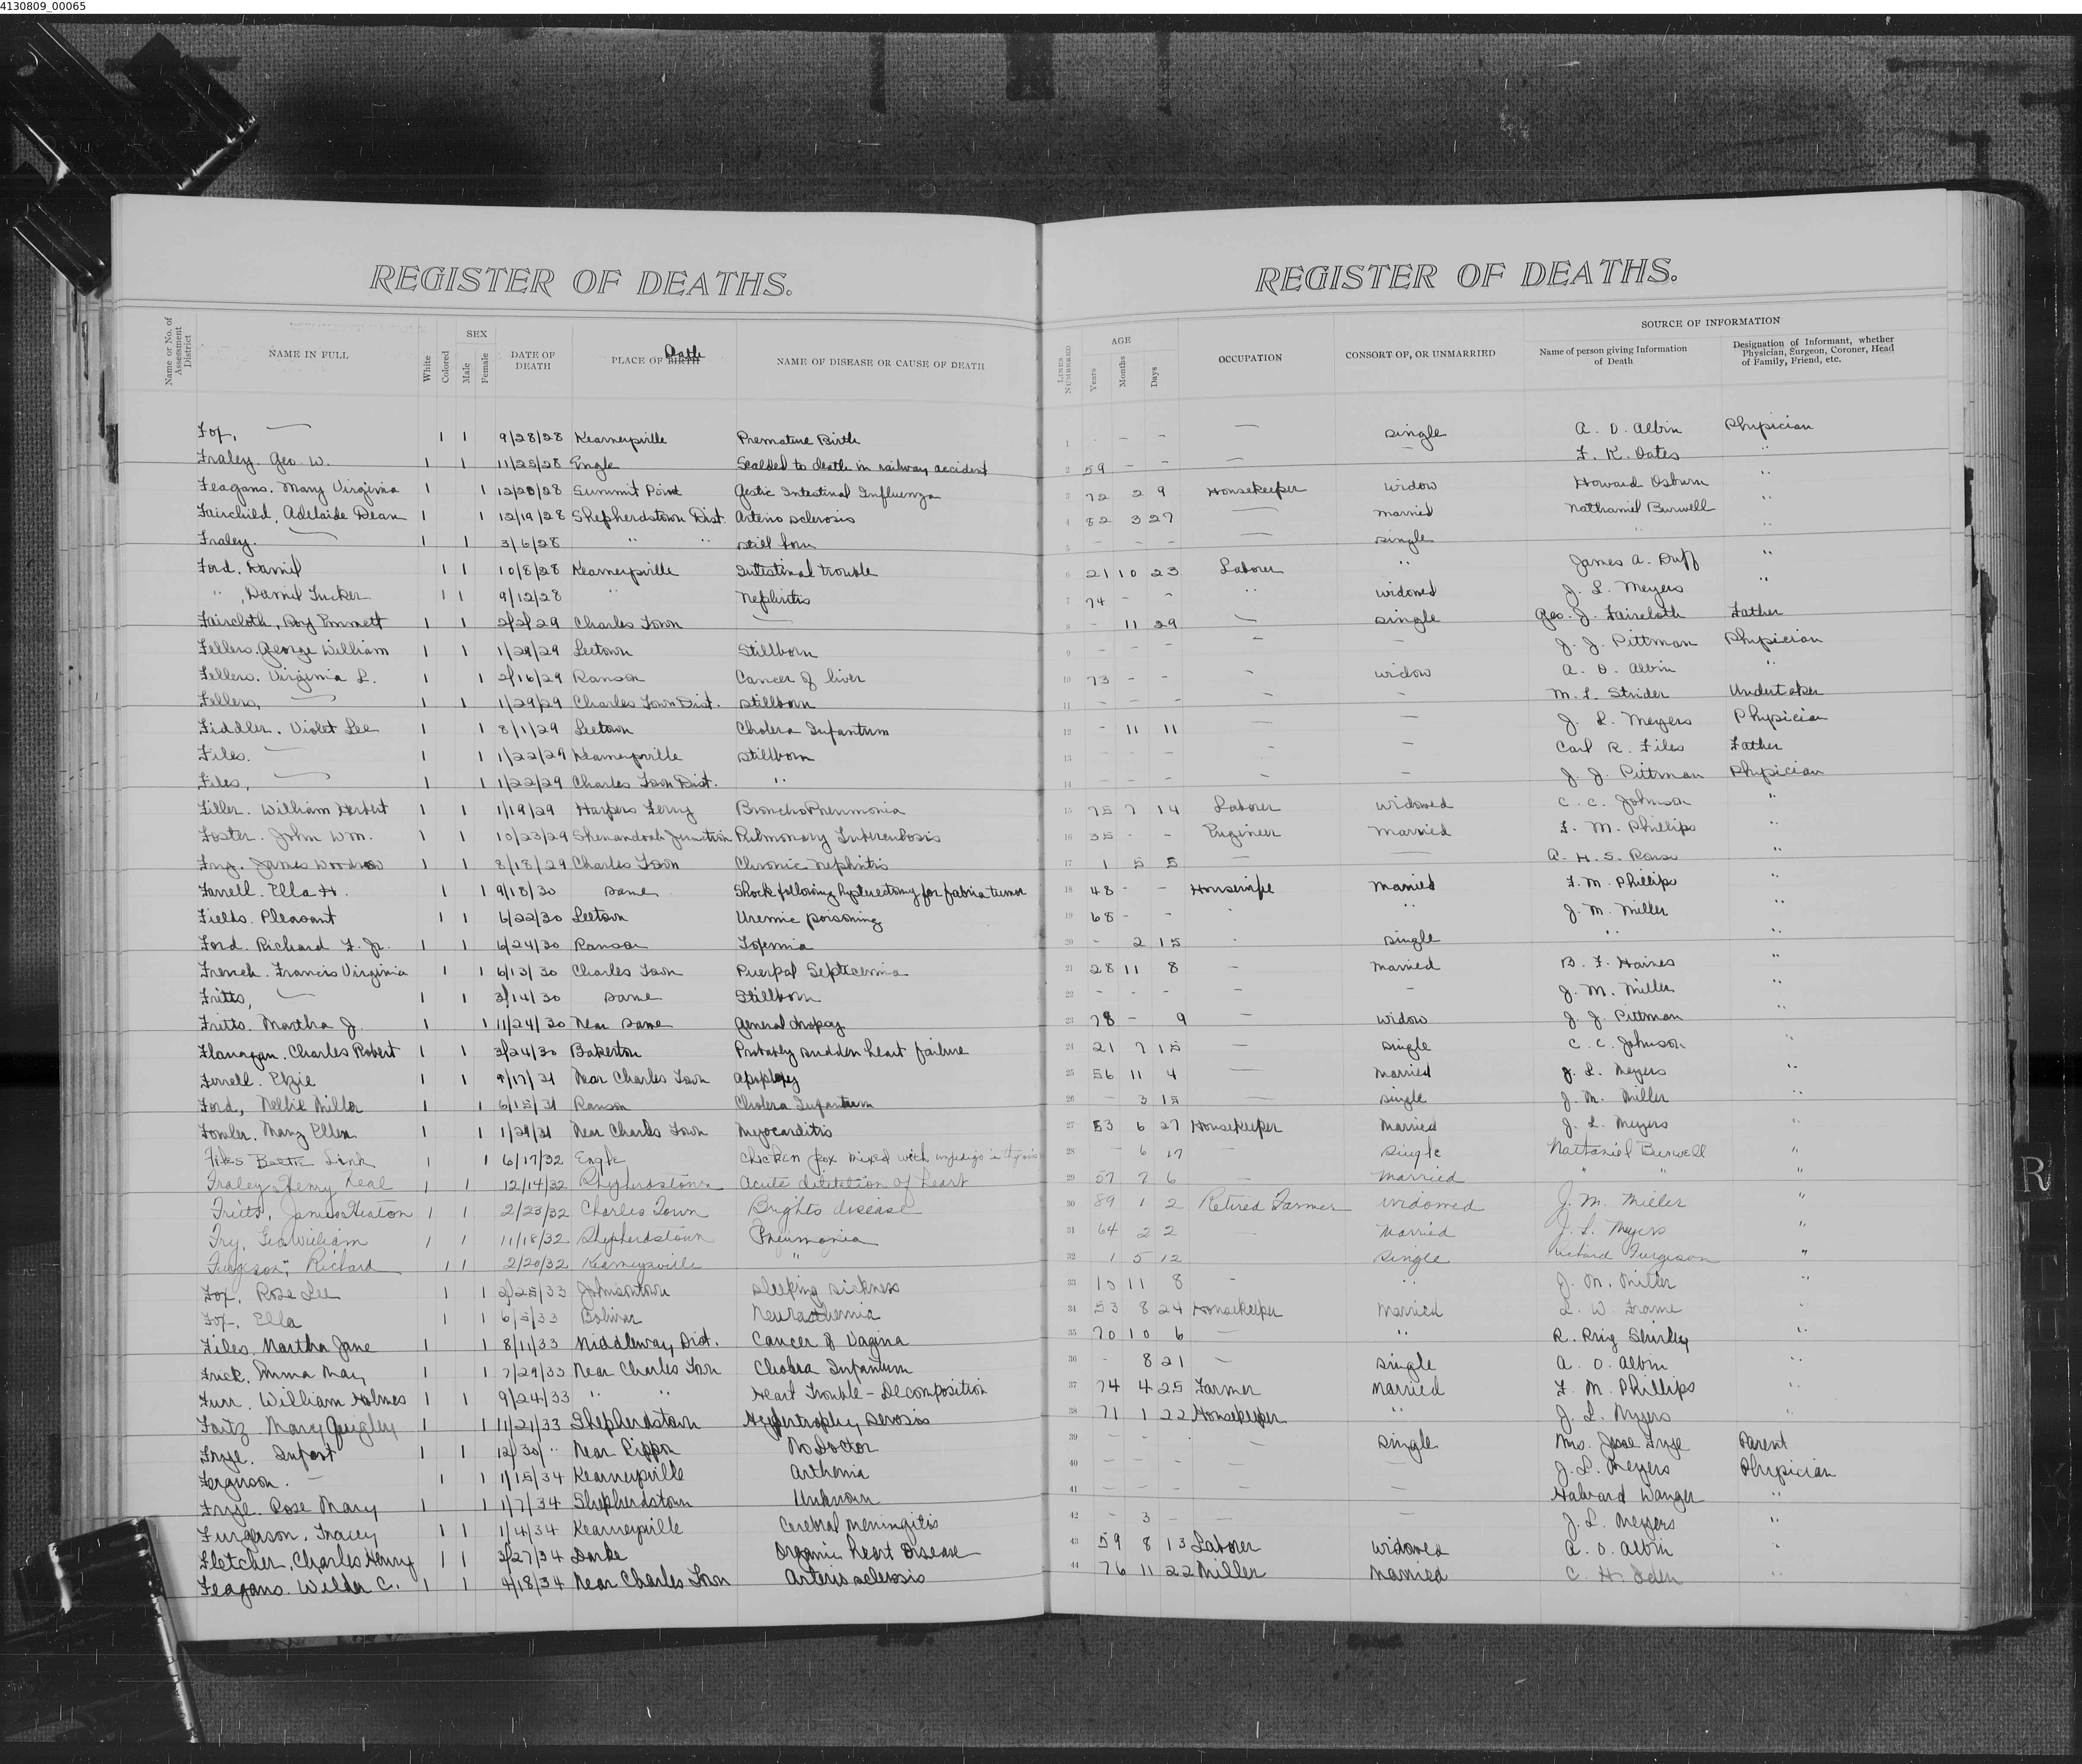 4130809_00065
REGISTER OF DEATHS. REGISTER OF DEATHS.
Name or No. of Assessment District NAME IN FULL White Colored SEX Male Female DATE OF DEATH PLACE OF BIRTH Death NAME OF DISEASE OR CAUSE OF DEATH LINES NUMBERED AGE Years Months Days OCCUPATION CONSORT OF, OR UNMARRIED SOURCE OF INFORMATION Name of person giving Information of Death Designation of Informant, whether Physician, Surgeon, Coroner, Head of Family, Friend, etc.
Fox, — 1 1 9/28/28 Kearneysville Premature Birth 1 - - — single A. O. Albin Physician
Fraley. Geo. W. 1 1 11/25/28 Engle Scalded to death in railway accident 2 59 - - — F. K. Oates "
Feagans. Mary Virginia 1 1 12/20/28 Summit Point Gestic Intestinal Influenza 3 72 2 9 Housekeeper widow Howard Osburn "
Fairchild, Adelaide Dean 1 1 12/19/28 Shepherdstown Dist. Arterio sclerosis 4 82 3 27 — married Nathaniel Burwell "
Fraley. — 1 1 3/6/28 " " still born 5 - - - — single " "
Ford. Daniel 1 1 10/8/28 Kearneysville Intestinal trouble 6 21 10 23 Laborer " James A. Duff "
" , Daniel Tucker 1 1 9/12/28 " Nephritis 7 74 - - " widowed J. L. Meyers "
Faircloth, Roy Emmett 1 1 2/2/29 Charles Town — 8 - 11 29 — single Geo. J. Faircloth Father
Fellers. George William 1 1 1/29/29 Leetown Stillborn 9 - - - - — J. J. Pittman Physician
Fellers. Virginia L. 1 1 2/16/29 Ranson Cancer of liver 10 73 - - - widow A. O. Albin "
Fellers, — 1 1 1/29/29 Charles Town Dist. stillborn 11 - - - - - M. L. Strider Undertaker
Fiddler. Violet Lee 1 1 8/1/29 Leetown Cholera Infantum 12 - 11 11 — — J. L. Meyers Physician
Files. — 1 1 1/22/29 Kearneysville stillborn 13 - - - - — Carl R. Files Father
Files, — 1 1 1/22/29 Charles Town Dist. " 14 - - - - - J. J. Pittman Physician
Filler. William Herbert 1 1 1/19/29 Harpers Ferry BronchoPneumonia 15 75 7 14 Laborer widowed C. C. Johnson "
Foster. John Wm. 1 1 10/23/29 Shenandoah Junction Pulmonary Tuberculosis 16 35 - - Engineer married F. M. Phillips "
Fry. James Woodrow 1 1 8/18/29 Charles Town Chronic nephritis 17 1 5 5 — — A. H. S. "
Farrell. Ella H. 1 1 9/18/30 same Shock following hysterectomy for fabria tumor 18 48 - - Housewife married F. M. Phillips "
Fields. Pleasant 1 1 6/22/30 Leetown Uremic poisoning 19 68 - - " J. M. Miller "
Ford. Richard F. Jr. 1 1 6/24/30 Ranson Toxemia 20 - 2 15 - single " "
French. Francis Virginia 1 1 6/13/30 Charles Town Puerpal Septicemia 21 28 11 8 — married B. F. Haines "
Fritts, — 1 1 3/14/30 same Stillborn 22 - - - - - J. M. Miller "
Fritts. Martha J. 1 1 11/24/30 Near same general dropsy 23 78 - 9 — widow J. J. Pittman "
Flanagan. Charles Robert 1 1 3/24/30 Bakerton Probably sudden heart failure 24 21 7 15 — single C. C. Johnson "
Ferrell. Elzie 1 1 9/17/31 Near Charles Town apoplexy 25 56 11 4 — married J. L. Meyers "
Ford, Nellie Miller 1 1 6/15/31 Ranson Cholera Infantum 26 - 3 15 — single J. M. Miller "
Fowler. Mary Ellen 1 1 1/29/31 Near Charles Town Myocarditis 27 53 6 27 Housekeeper married J. L. Meyers "
Files Bettie Link 1 1 6/17/32 Engle Chicken pox mixed with impedigo 28 6 17 single Nathaniel Burwell "
Fraley Henry Neal 1 1 12/14/32 Shepherdstown acute dilitation of heart 29 57 7 6 — Married " "
Fritts, James Heaton 1 1 2/23/32 Charles Town Brights disease 30 89 1 2 Retired Farmer widowed J. M. Miller "
Fry, Geo William 1 1 11/18/32 Shepherdstown Pneumonia 31 64 2 2 — Married J. L. Meyers "
Furgeson, Richard 1 1 2/20/32 Kearneysville " 32 1 5 12 single Richard Furgison "
Fox, Rose Lee 1 1 2/25/33 Johnsontown sleeping sickness 33 15 11 8 - " J. M. Miller "
Fox, Ella 1 1 6/5/33 Bolivar neurasthemia 34 53 8 24 Housekeeper married L. W. Frame "
Files. Martha Jane 1 1 8/11/33 Middleway Dist. Cancer of Vagina 35 70 10 6 — " R. Prig Shirley "
Frick. Emma May 1 1 7/29/33 Near Charles Town Cholera Infantum 36 - 8 21 — single A. O. Albin "
Furr. William Holmes 1 1 9/24/33 " " Heart Trouble - Decomposition 37 74 4 25 Farmer married F. M. Phillips "
Faitz Mary Quigley 1 1 11/21/33 Shepherdstown Hypertrophy serosis 38 71 1 22 Housekeeper " J. L. Myers "
Frye. Infant 1 1 12/30/" Near Rippon No Doctor 39 - - - — single Mrs. Jesse Frye Parent
Ferguson. — 1 1 1/15/34 Kearneysville Asthenia 40 - - - — — J. L. Meyers Physician
Frye. Rose Mary 1 1 1/7/34 Shepherdstown Unknown 41 - - - — — Halvard Wanger "
Furgerson, Tracey 1 1 1/4/34 Kearneysville Cerebral meningitis 42 - 3 - — — J. L. Meyers "
Fletcher, Charles Henry 1 1 3/27/34 Darke Organic heart Disease 43 59 8 13 Laborer widowed A. O. Albin "
Feagans. Wilda C. 1 1 4/18/34 Near Charles Town Arterio sclerosis 44 76 11 22 Miller married C. H. "
R